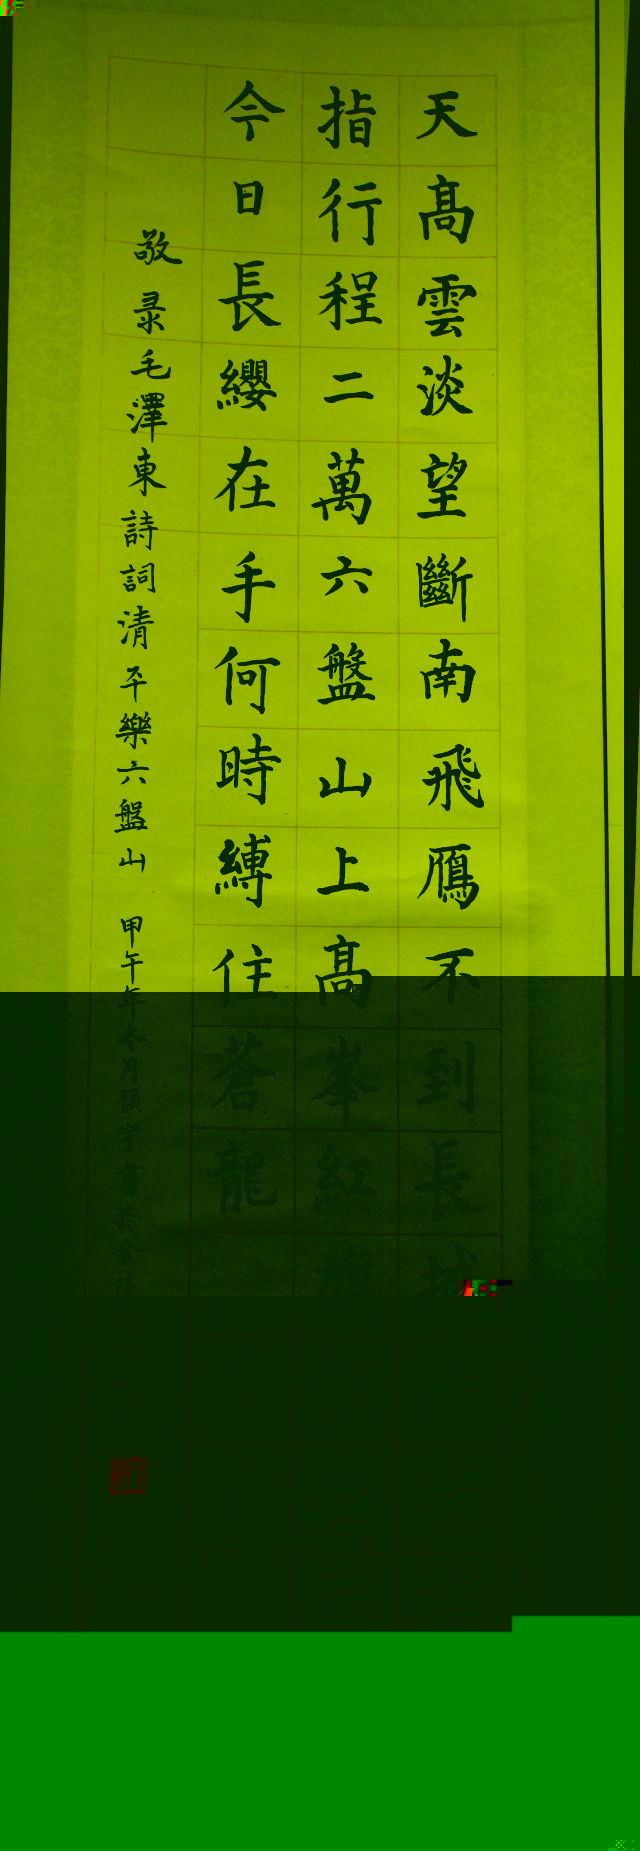 天高雲淡望斷南飛鴈不到長城
指行程二萬六盤山上高峯紅
今日長纓在手何時縛住蒼龍
敬录毛澤東詩詞清平樂六盤山 甲午年冬月